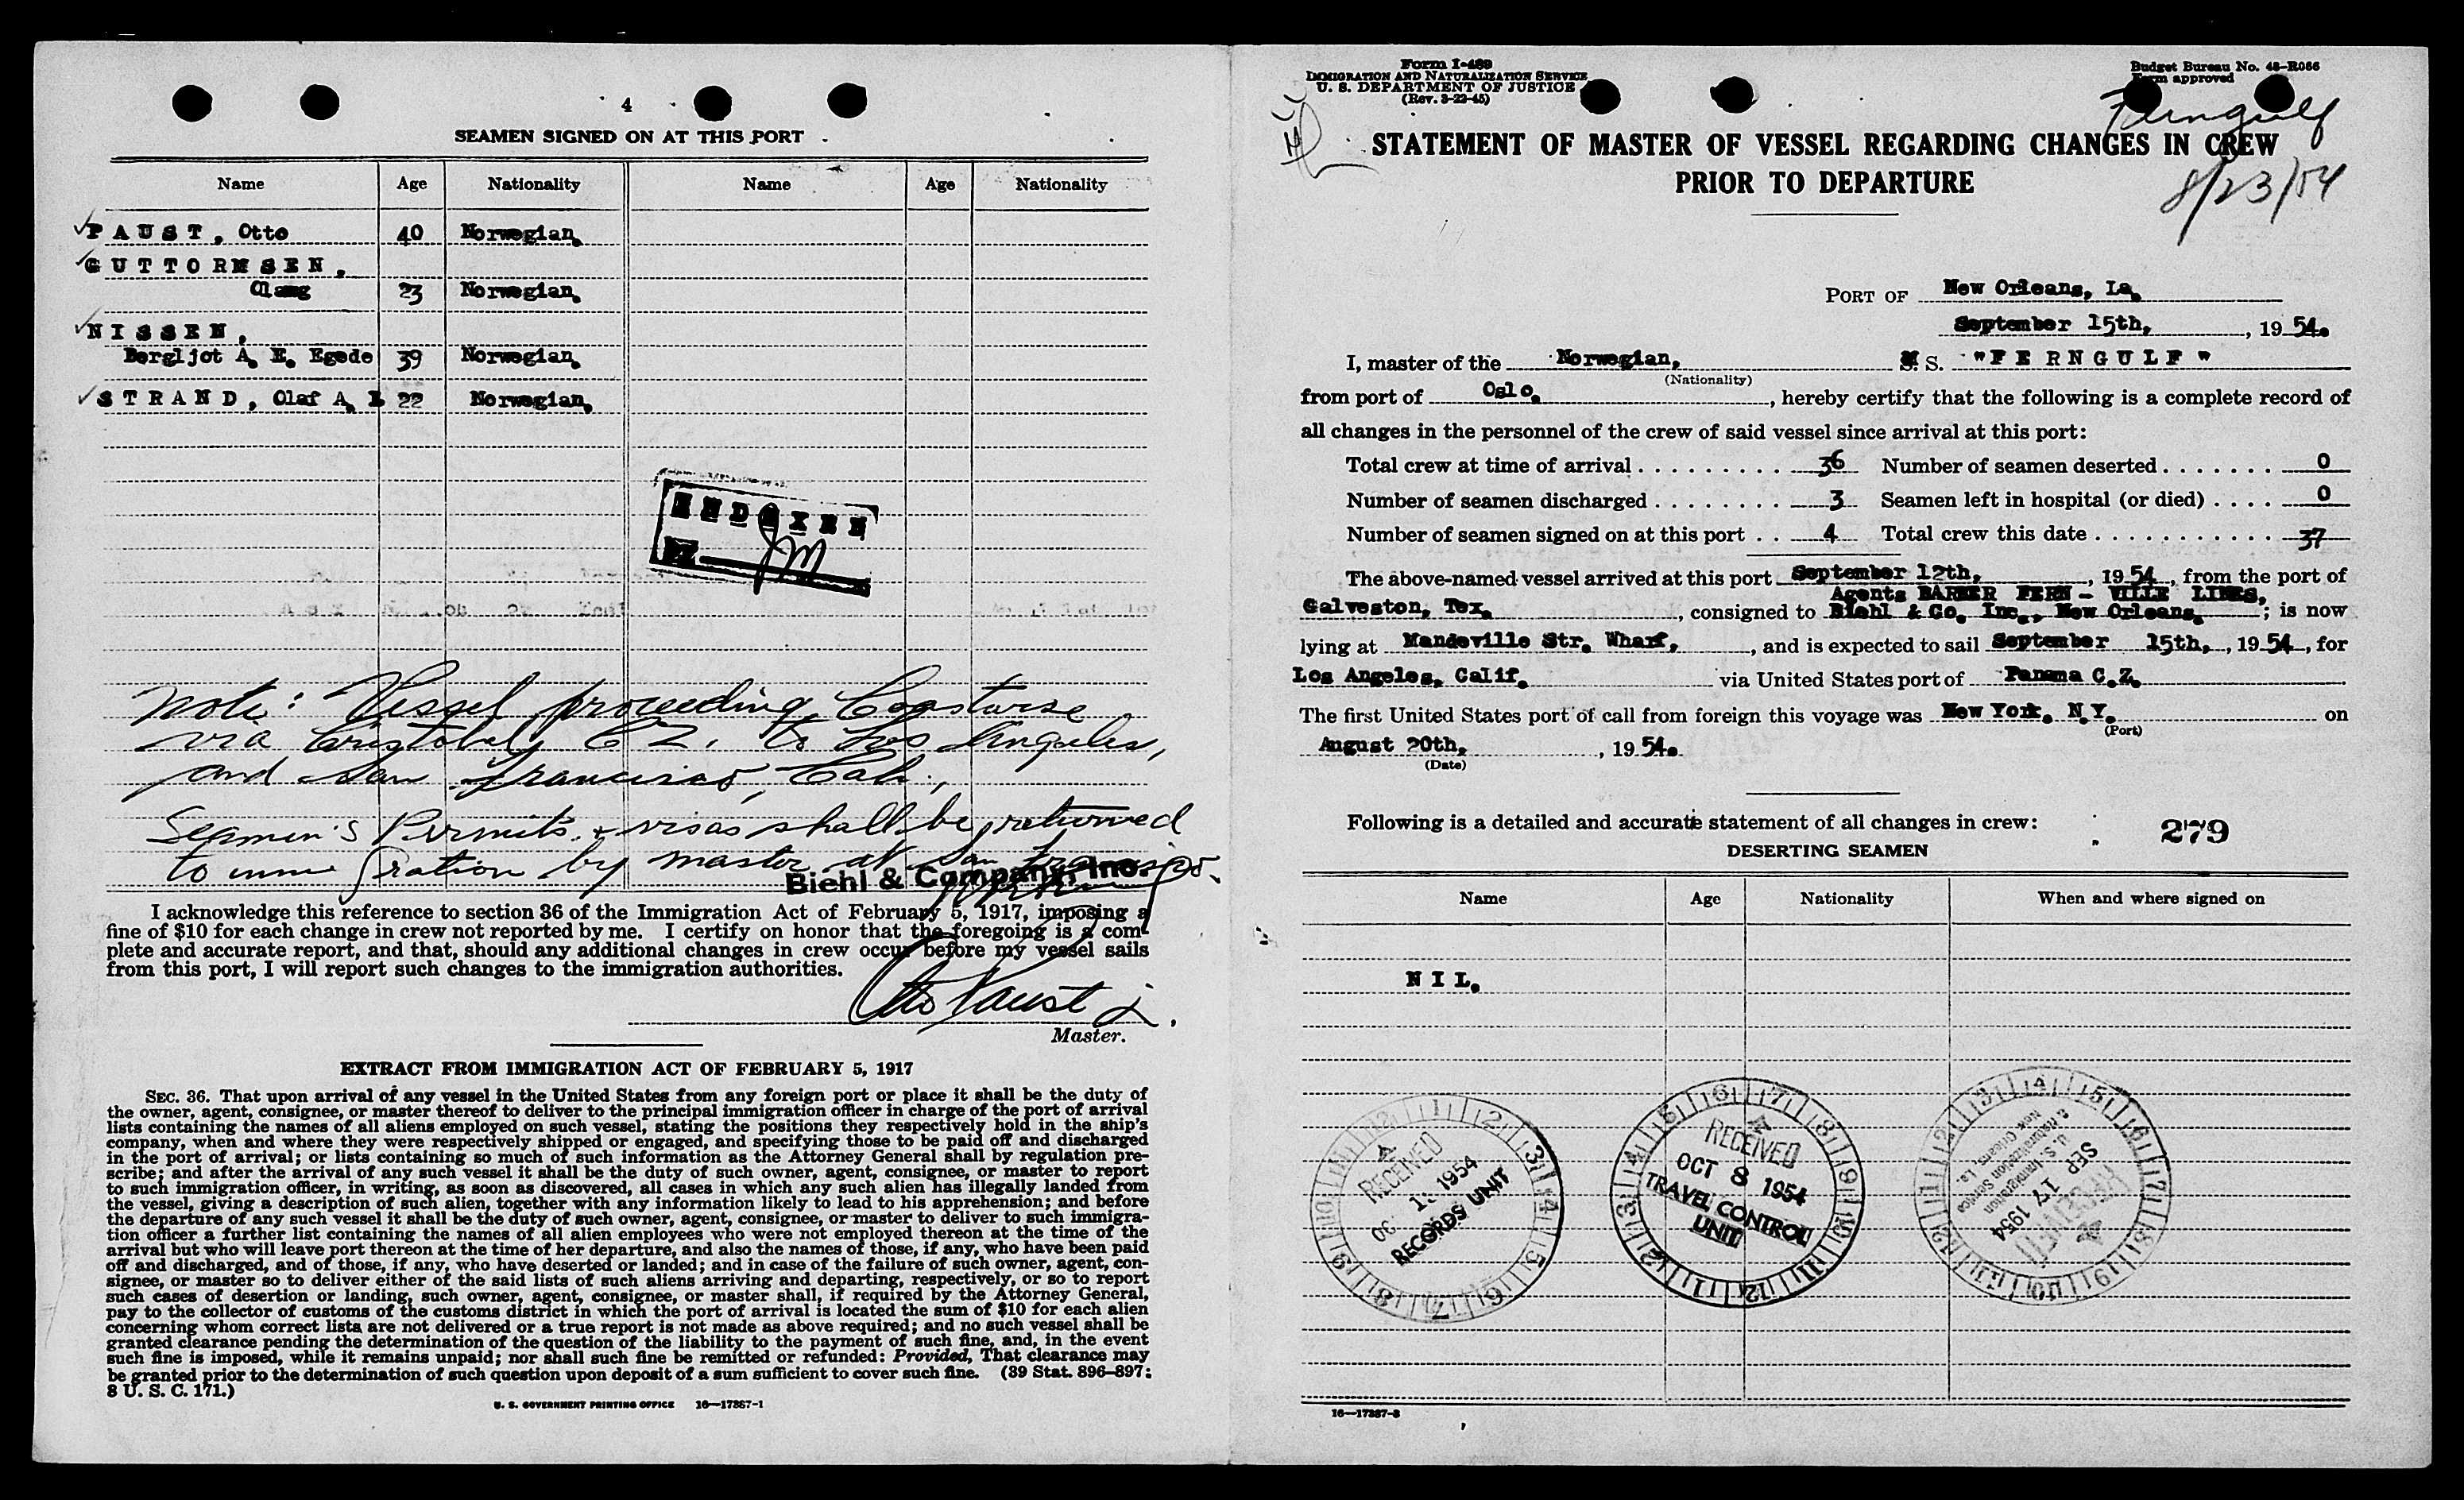 4
SEAMEN SIGNED ON AT THIS PORT
Name Age Nationality Name Age Nationality
PAUST, Otto 40 Norwegian.
GUTTORMSEN,
23 Norwegian.
NISSEN,
Bergljot A. E. Egede 39 Norwegian.
STRAND, Olaf A. 22 Norwegian.
INDEXED
BY JM
Note: Vessel proceeding Coastwise
via Cristobal, C Z. to Los Angeles,
and San Francisco, Cal.,
Seamen's Permits & visas shall be returned
to immigration by master at San Francisco.
Biehl & Company, Inc.
I acknowledge this reference to section 36 of the Immigration Act of February 5, 1917, imposing a
fine of $10 for each change in crew not reported by me. I certify on honor that the foregoing is a com-
plete and accurate report, and that, should any additional changes in crew occur before my vessel sails
from this port, I will report such changes to the immigration authorities.
Otto Paust
Master.
EXTRACT FROM IMMIGRATION ACT OF FEBRUARY 5, 1917
SEC. 36. That upon arrival of any vessel in the United States from any foreign port or place it shall be the duty of
the owner, agent, consignee, or master thereof to deliver to the principal immigration officer in charge of the port of arrival
lists containing the names of all aliens employed on such vessel, stating the positions they respectively hold in the ship's
company, when and where they were respectively shipped or engaged, and specifying those to be paid off and discharged
in the port of arrival; or lists containing so much of such information as the Attorney General shall by regulation pre-
scribe; and after the arrival of any such vessel it shall be the duty of such owner, agent, consignee, or master to report
to such immigration officer, in writing, as soon as discovered, all cases in which any such alien has illegally landed from
the vessel, giving a description of such alien, together with any information likely to lead to his apprehension; and before
the departure of any such vessel it shall be the duty of such owner, agent, consignee, or master to deliver to such immigra-
tion officer a further list containing the names of all alien employees who were not employed thereon at the time of the
arrival but who will leave port thereon at the time of her departure, and also the names of those, if any, who have been paid
off and discharged, and of those, if any, who have deserted or landed; and in case of the failure of such owner, agent, con-
signee, or master so to deliver either of the said lists of such aliens arriving and departing, respectively, or so to report
such cases of desertion or landing, such owner, agent, consignee, or master shall, if required by the Attorney General,
pay to the collector of customs of the customs district in which the port of arrival is located the sum of $10 for each alien
concerning whom correct lists are not delivered or a true report is not made as above required; and no such vessel shall be
granted clearance pending the determination of the question of the liability to the payment of such fine, and, in the event
such fine is imposed, while it remains unpaid; nor shall such fine be remitted or refunded: Provided, That clearance may
be granted prior to the determination of such question upon deposit of a sum sufficient to cover such fine. (39 Stat. 896–897;
8 U. S. C. 171.)
U. S. GOVERNMENT PRINTING OFFICE 16—17387-1
Form I-489
IMMIGRATION AND NATURALIZATION SERVICE
U. S. DEPARTMENT OF JUSTICE
(Rev. 3-22-45)
Budget Bureau No. 43-R066
Form approved
Ferngulf
8/23/54
STATEMENT OF MASTER OF VESSEL REGARDING CHANGES IN CREW
PRIOR TO DEPARTURE
PORT OF New Orleans, La.
September 15th, , 19 54.
I, master of the Norwegian, M. S. "FERNGULF"
(Nationality)
from port of Oslo. , hereby certify that the following is a complete record of
all changes in the personnel of the crew of said vessel since arrival at this port:
Total crew at time of arrival . . . . . . . . . . 36 Number of seamen deserted . . . . . . . 0
Number of seamen discharged . . . . . . . . 3 Seamen left in hospital (or died) . . . . 0
Number of seamen signed on at this port . . 4 Total crew this date . . . . . . . . . . . 37
The above-named vessel arrived at this port September 12th, , 19 54 , from the port of
Agents BARBER FERN - VILLE LINES,
Galveston, Tex. , consigned to Biehl & Co. Inc., New Orleans ; is now
lying at Mandeville Str. Wharf, , and is expected to sail September 15th, , 19 54 , for
Los Angeles, Calif. via United States port of Panama C.Z.
The first United States port of call from foreign this voyage was New York. N.Y. on
(Port)
August 20th, , 19 54.
(Date)
Following is a detailed and accurate statement of all changes in crew:
279
DESERTING SEAMEN
Name Age Nationality When and where signed on
NIL.
RECEIVED
1954
RECORDS UNIT
RECEIVED
OCT 8 1954
TRAVEL CONTROL
UNIT
U. S. Immigration
& Naturalization Service
New Orleans La.
SEP 17 1954
RECEIVED
16—17387-3